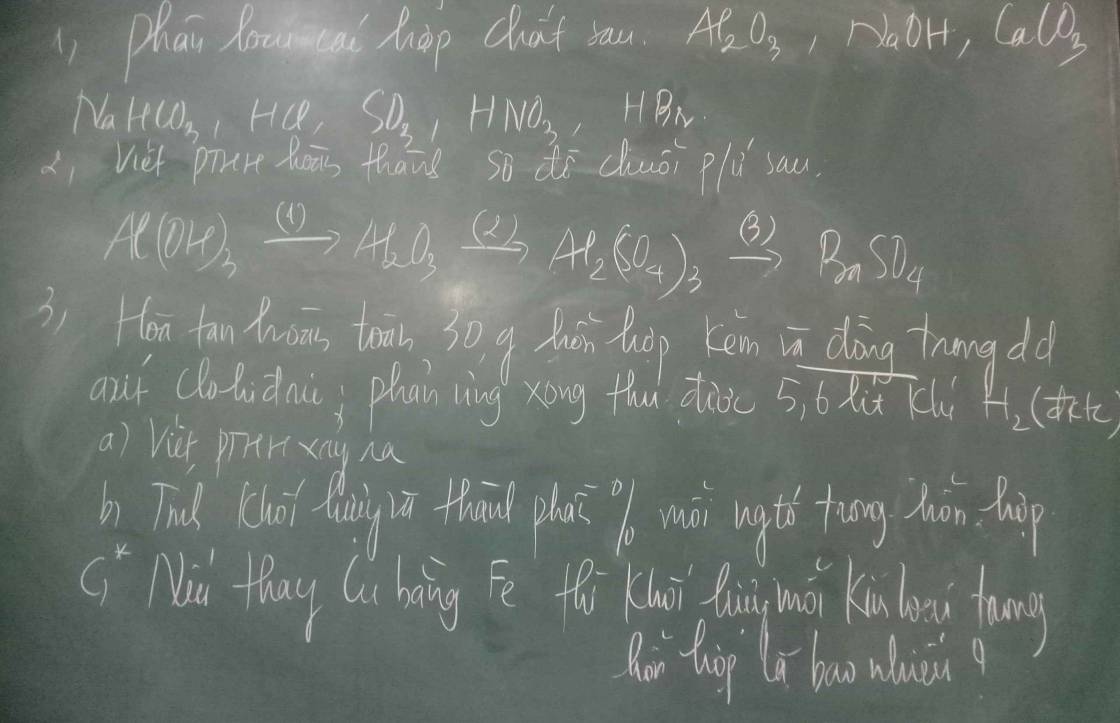 1, Phân loại các hợp chất sau. Al₂O₃, NaOH, CaCO₃
NaHCO₃, HCl, SO₃, HNO₃, HBr.
2, Viết PTHH hoàn thành sơ đồ chuỗi p/ứ sau.
Al(OH)₃ (1)→ Al₂O₃ (2)→ Al₂(SO₄)₃ (3)→ BaSO₄
3, Hòa tan hoàn toàn 30g hỗn hợp kẽm và đồng trong dd
axit clohiđric; phản ứng xong thu được 5,6 lít khí H₂ (đktc)
a) Viết PTHH xảy ra
b) Tính khối lượng và thành phần % mỗi ng tố trong hỗn hợp
C,* Nếu thay Cu bằng Fe thì khối lượng mỗi kim loại trong
hỗn hợp là bao nhiêu?